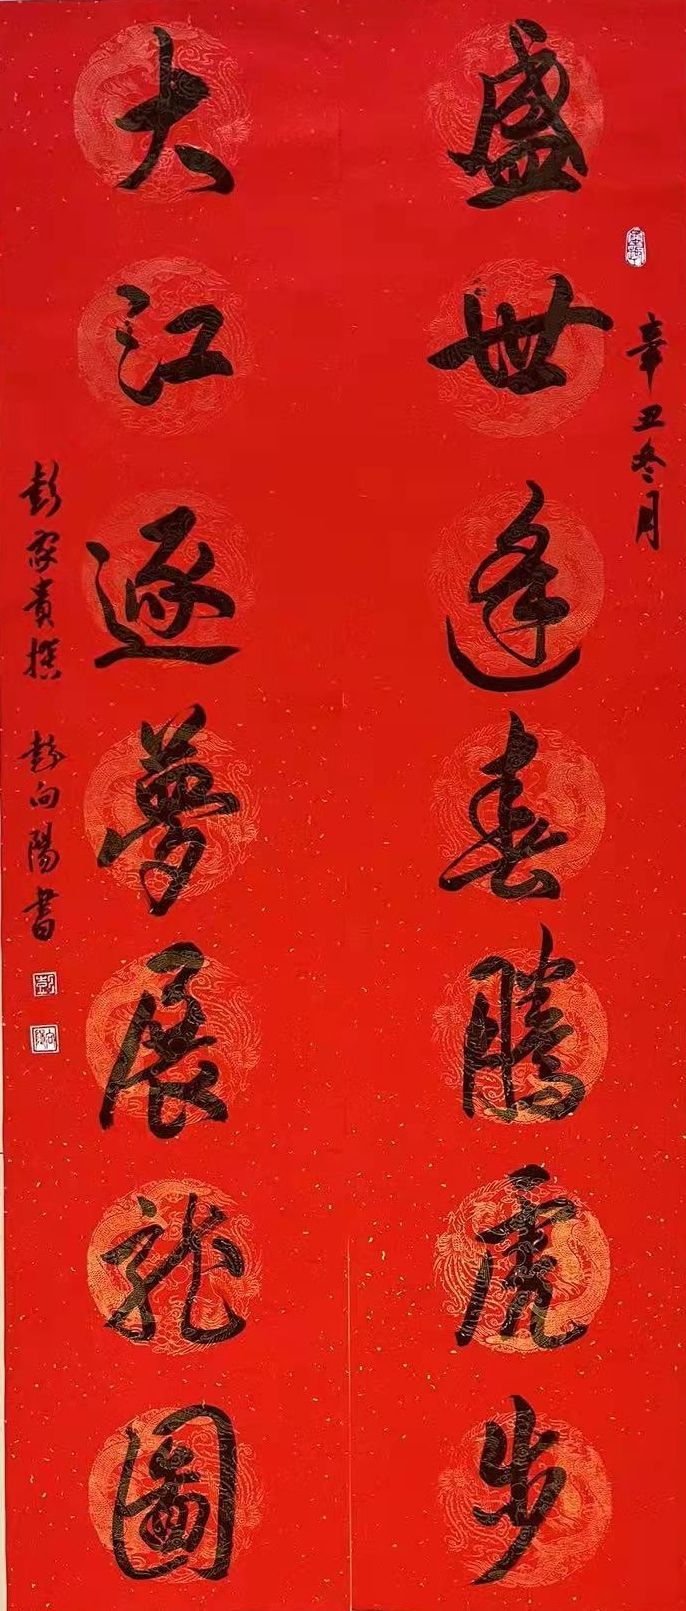 盛世逢春騰虎步
辛丑冬月
大江逐夢展龍圖
彭家貴撰 彭向陽書
彭